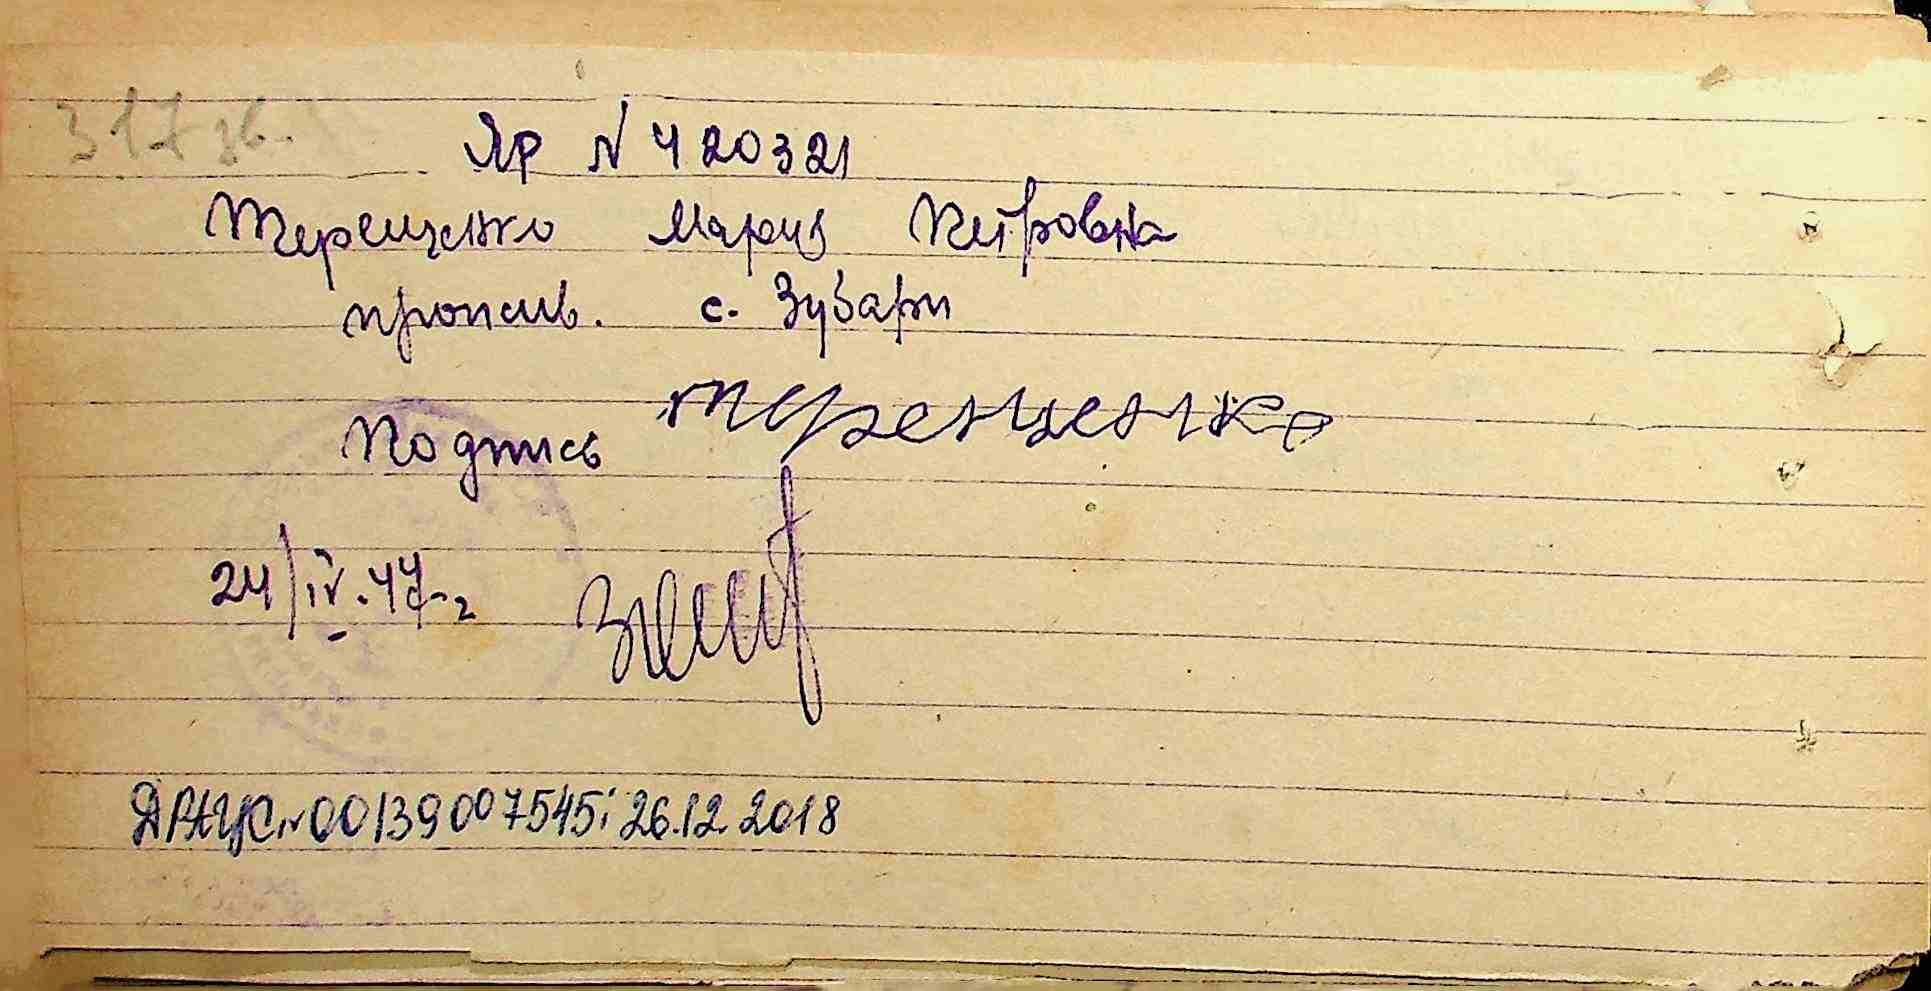 317 зв.
ЯР N 420321
Терещенко Мария Петровна
пропис. с. Зубари
Подпись Терещенко
24/IV.44 г
ДРАЦС N 00139007545; 26.12.2018